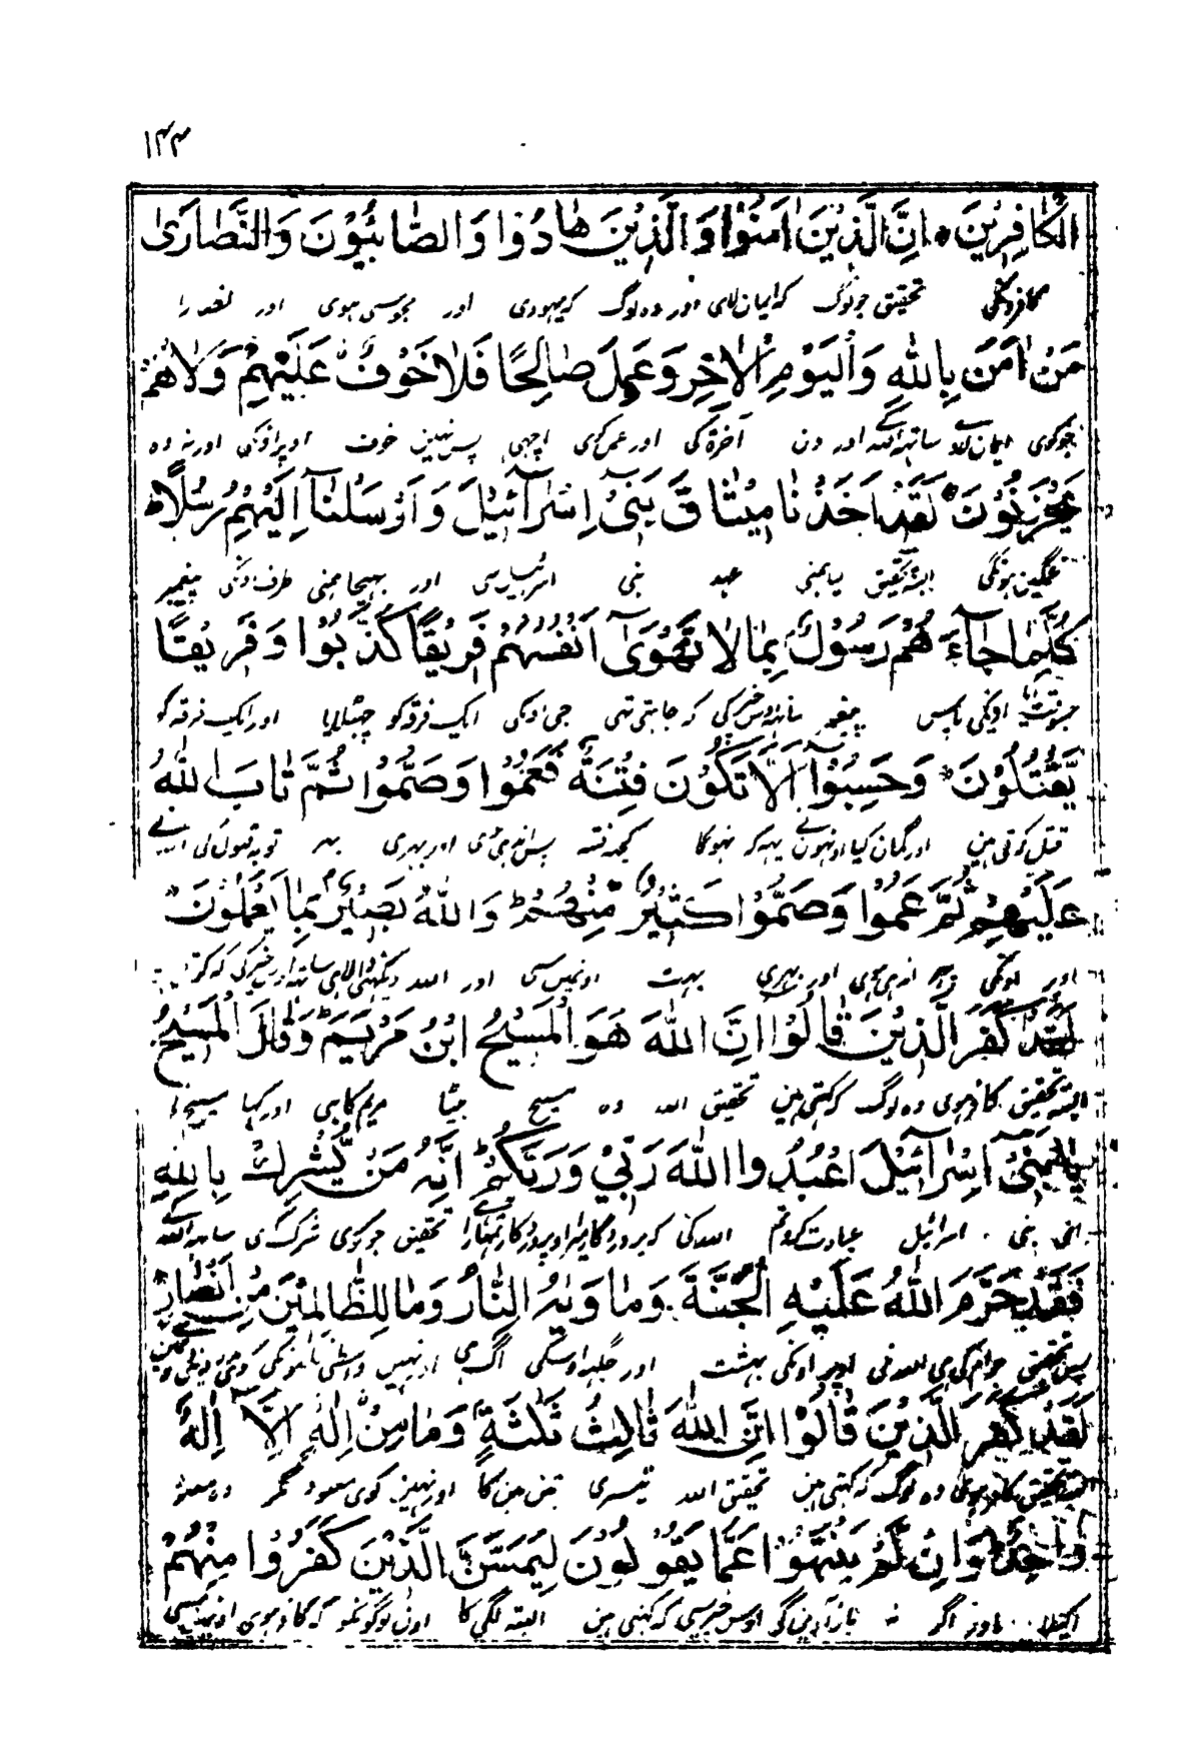 ۱۴۴
الكَافِرِيْنَ * اِنَّ الَّذِيْنَ اٰمَنُوْا وَالَّذِيْنَ هَادُوْا وَالصَّابِئُوْنَ وَالنَّصَارَىٰ
کافرونکی تحقیق جو لوگ کہ ایمان لای اور وہ لوگ کہ یہودی اور مجوسی ہوی اور نصارا
مَنْ اٰمَنَ بِاللّٰهِ وَالْيَوْمِ الْاٰخِرِ وَعَمِلَ صَالِحًا فَلَا خَوْفٌ عَلَيْهِمْ وَلَا هُمْ
جو کوی ایمان لاے ساتہہ اللہ کے اور دن آخرة کی اور عمل کری اچہی پس نہین خوف اوپر اونکی اور نہ وہ
يَحْزَنُوْنَ * لَقَدْ اَخَذْنَا مِيْثَاقَ بَنِيْٓ اِسْرَآئِيْلَ وَاَرْسَلْنَآ اِلَيْهِمْ رُسُلًا
غمگین ہونگی البتہ تحقیق لیا ہمنی عہد بنی اسرائیل سی اور بہیجا ہمنی طرف اونکی پیغمبر
كُلَّمَا جَآءَهُمْ رَسُوْلٌ بِمَا لَا تَهْوٰىٓ اَنْفُسُهُمْ فَرِيْقًا كَذَّبُوْا وَفَرِيْقًا
جسوقت آیا اونکی پاس پیغمبر ساتہہ اوس چیز کی کہ نہ چاہتی تہی جی اونکی ایک فرقہ کو جہٹلایا اور ایک فرقہ کو
يَّقْتُلُوْنَ * وَحَسِبُوْٓا اَلَّا تَكُوْنَ فِتْنَةٌ فَعَمُوْا وَصَمُّوْا ثُمَّ تَابَ اللّٰهُ
قتل کرتی ہین اور گمان کیا اونہون نے یہہ کہ نہوگا کچہہ فتنہ پس اندہی ہوی اور بہری پہر توبہ قبول کی اللہ نے
عَلَيْهِمْ ثُمَّ عَمُوْا وَصَمُّوْا كَثِيْرٌ مِّنْهُمْ ط وَاللّٰهُ بَصِيْرٌ بِمَا يَعْمَلُوْنَ *
اوپر اونکی پہر اندہی ہوی اور بہری بہت اونمین سی اور اللہ دیکہنی والا ہی ساتہہ اوس چیز کی کہ کرتی
لَقَدْ كَفَرَ الَّذِيْنَ قَالُوْٓا اِنَّ اللّٰهَ هُوَ الْمَسِيْحُ ابْنُ مَرْيَمَ ط وَقَالَ الْمَسِيْحُ
البتہ تحقیق کافر ہوی وہ لوگ کہ کہتی ہین تحقیق اللہ وہ مسیح بیٹا مریم کا ہی اور کہا مسیح نی
يٰبَنِيْٓ اِسْرَآئِيْلَ اعْبُدُوا اللّٰهَ رَبِّيْ وَرَبَّكُمْ ط اِنَّهٗ مَنْ يُّشْرِكْ بِاللّٰهِ
ای بنی اسرائیل عبادت کرو تم اللہ کی کہ پروردگار میرا اور پروردگار تمہارا تحقیق جو کوی شرک کری ساتہہ اللہ کے
فَقَدْ حَرَّمَ اللّٰهُ عَلَيْهِ الْجَنَّةَ وَمَاْوٰىهُ النَّارُ وَمَا لِلظَّالِمِيْنَ مِنْ اَنْصَارٍ
پس تحقیق حرام کی ہی اللہ نی اوپر اونکی بہشت اور جگہہ اوسکی آگ ہی اور نہین واسطی ظالمونکی
لَقَدْ كَفَرَ الَّذِيْنَ قَالُوْٓا اِنَّ اللّٰهَ ثَالِثُ ثَلٰثَةٍ وَمَا مِنْ اِلٰهٍ اِلَّآ اِلٰهٌ
البتہ تحقیق کافر ہوی وہ لوگ کہ کہتی ہین تحقیق اللہ تیسری تین مین کا اور نہین کوی معبود مگر وہ معبود
وَّاحِدٌ ط وَاِنْ لَّمْ يَنْتَهُوْا عَمَّا يَقُوْلُوْنَ لَيَمَسَّنَّ الَّذِيْنَ كَفَرُوْا مِنْهُمْ
اکیلا اور اگر نہ باز آوینگی اوس چیز سی کہ کہتی ہین البتہ لگی گا اون لوگونکو کہ کافر ہوی اونمین سی